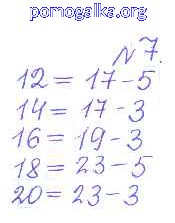 pomogalka.org
№7.
12 = 17-5
14 = 17-3
16 = 19-3
18 = 23-5
20 = 23-3